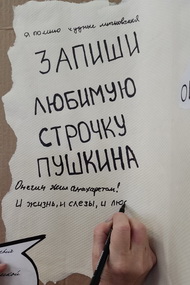 я помню чудное мгновенье
ЗАПИШИ
ЛЮБИМУЮ
СТРОЧКУ
ПУШКИНА
Онегин жил анахоретом!
И жизнь, и слезы, и лю